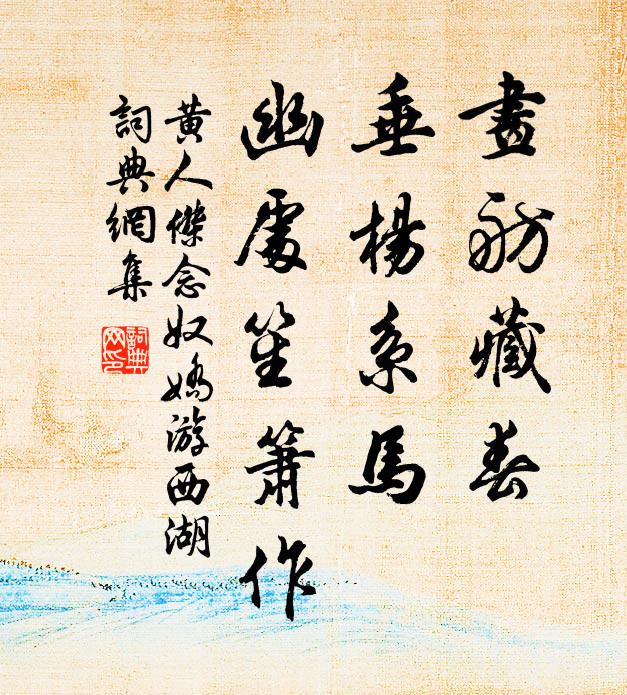 畫舫藏春
垂楊系馬
幽處笙簫作
黄人傑念奴嬌游西湖
詞典網集
詞典網印